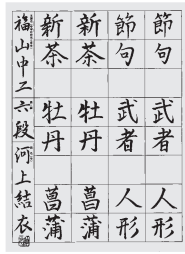 節句　武者　人形
節句　武者　人形
新茶　牡丹　菖蒲
新茶　牡丹　菖蒲
福山中二 六段 河上結衣